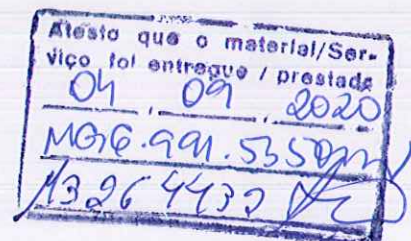 Atesto que o material/Ser-
viço foi entregue / prestado
04 . 09 . 2020
MG16.991.535
13264432